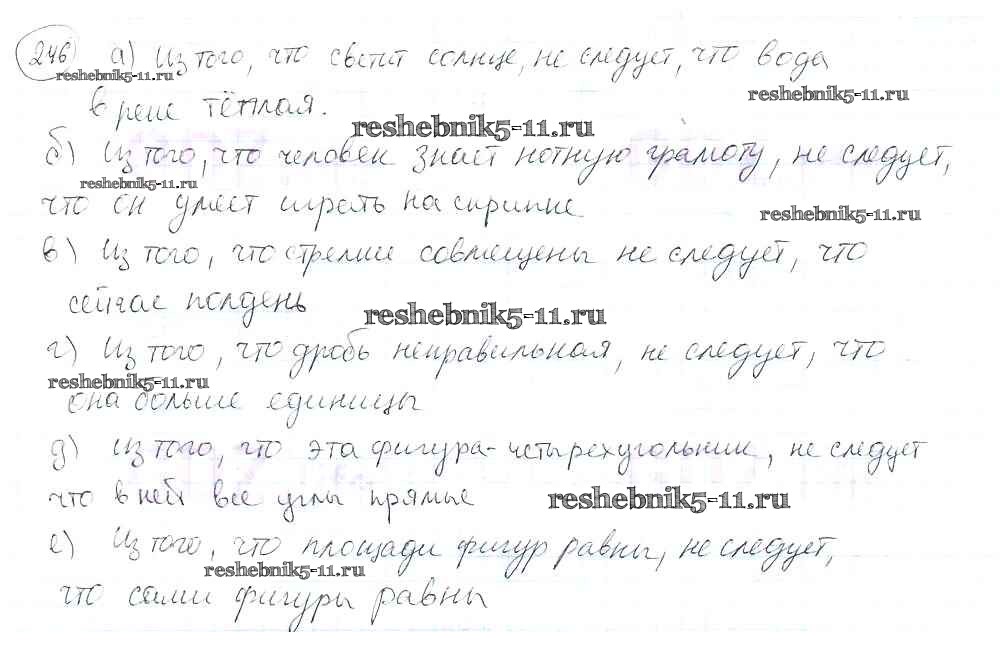 246 а) Из того, что светит солнце, не следует, что вода
reshebnik5-11.ru
reshebnik5-11.ru
в реке тёплая.
reshebnik5-11.ru
б) Из того, что человек знает нотную грамоту, не следует,
reshebnik5-11.ru
что он умеет играть на скрипке
reshebnik5-11.ru
в) Из того, что стрелки совмещены не следует, что
сейчас полдень
reshebnik5-11.ru
г) Из того, что дробь неправильная, не следует, что
reshebnik5-11.ru
она больше единицы
д) Из того, что эта фигура-четырехугольник, не следует
что в ней все углы прямые
reshebnik5-11.ru
е) Из того, что площади фигур равны, не следует,
reshebnik5-11.ru
что сами фигуры равны